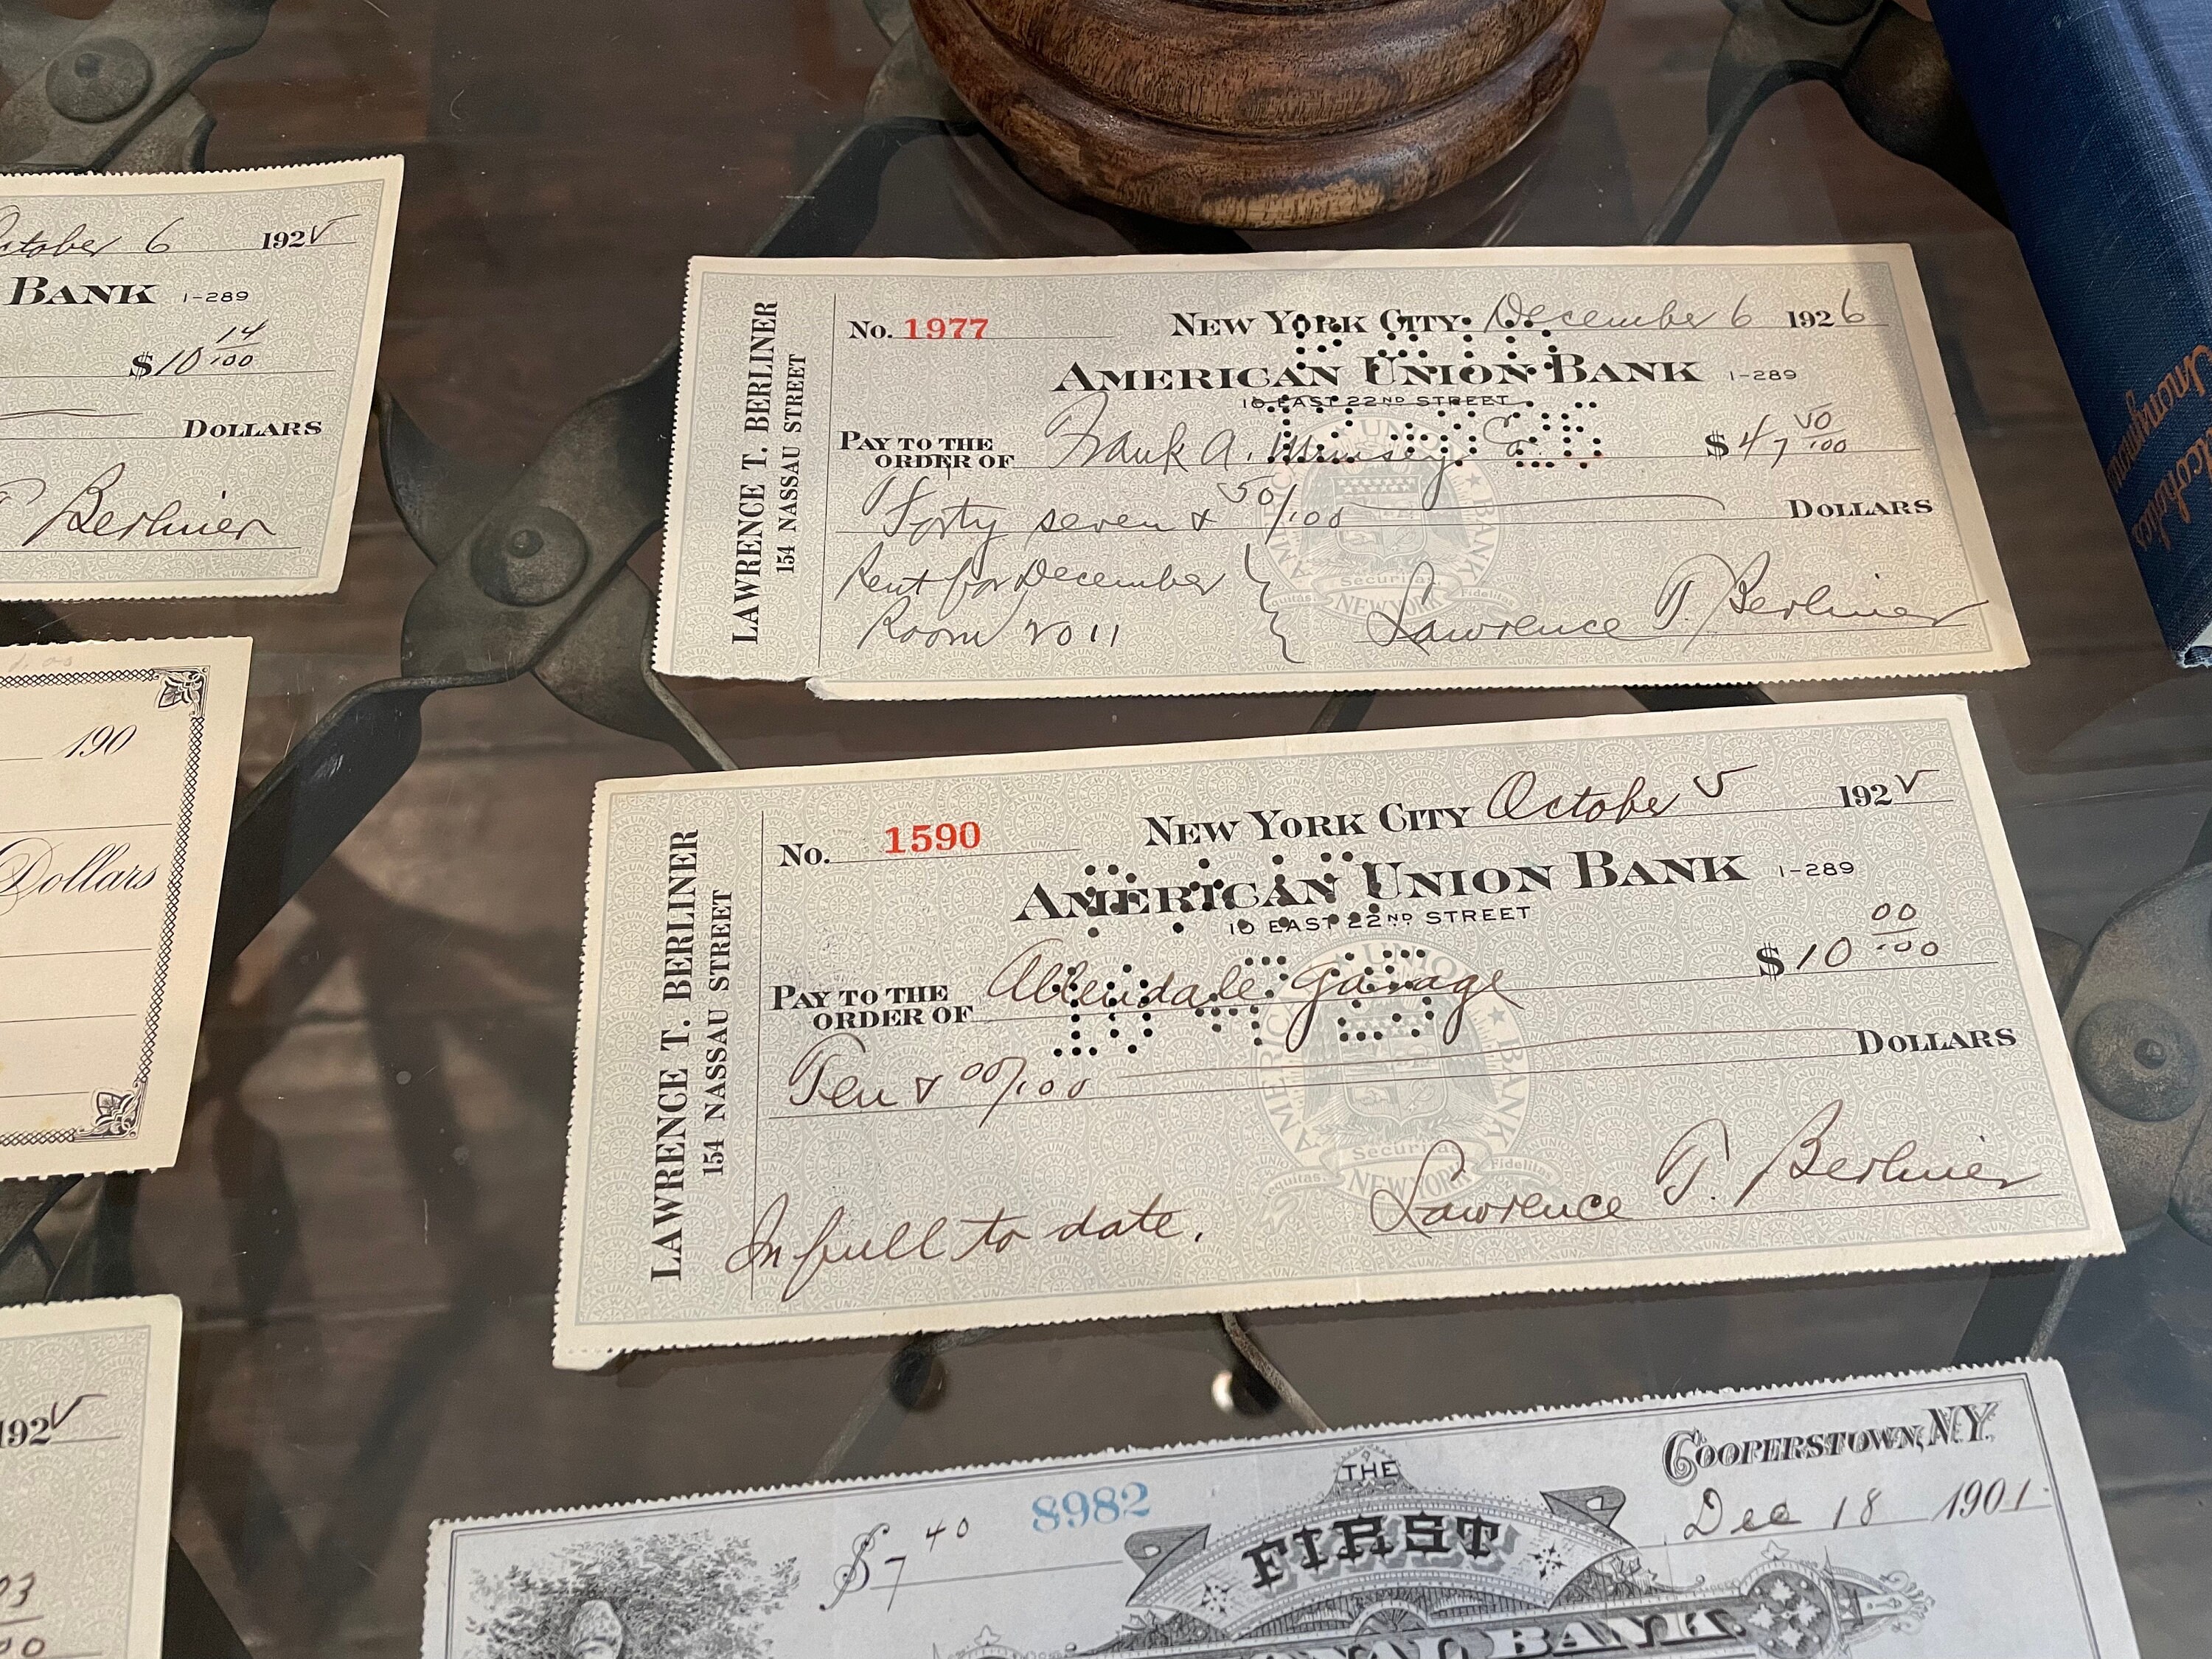 October 6 1925
BANK 1-289
$10 14/100
DOLLARS
T. Berliner
190
Dollars
1925
LAWRENCE T. BERLINER
154 NASSAU STREET
No. 1977 NEW YORK CITY December 6 1926
AMERICAN UNION BANK 1-289
10 EAST 22ND STREET
PAY TO THE
ORDER OF Frank A. Munsey Co. $47 50/100
Forty seven & 50/100 DOLLARS
Rent for December
Room 2011
Lawrence T. Berliner
AMERICAN UNION BANK
Securitas
Equitas Fidelitas
NEW YORK
LAWRENCE T. BERLINER
154 NASSAU STREET
No. 1590 NEW YORK CITY October 5 1925
AMERICAN UNION BANK 1-289
10 EAST 22ND STREET
PAY TO THE
ORDER OF Allendale Garage $10 00/100
Ten & 00/100 DOLLARS
In full to date.
Lawrence T. Berliner
AMERICAN UNION BANK
Securitas
Equitas Fidelitas
NEW YORK
COOPERSTOWN, N.Y.
Dec 18 1901
$7 40 8982
THE
FIRST
BANK
Alcoholics
Anonymous